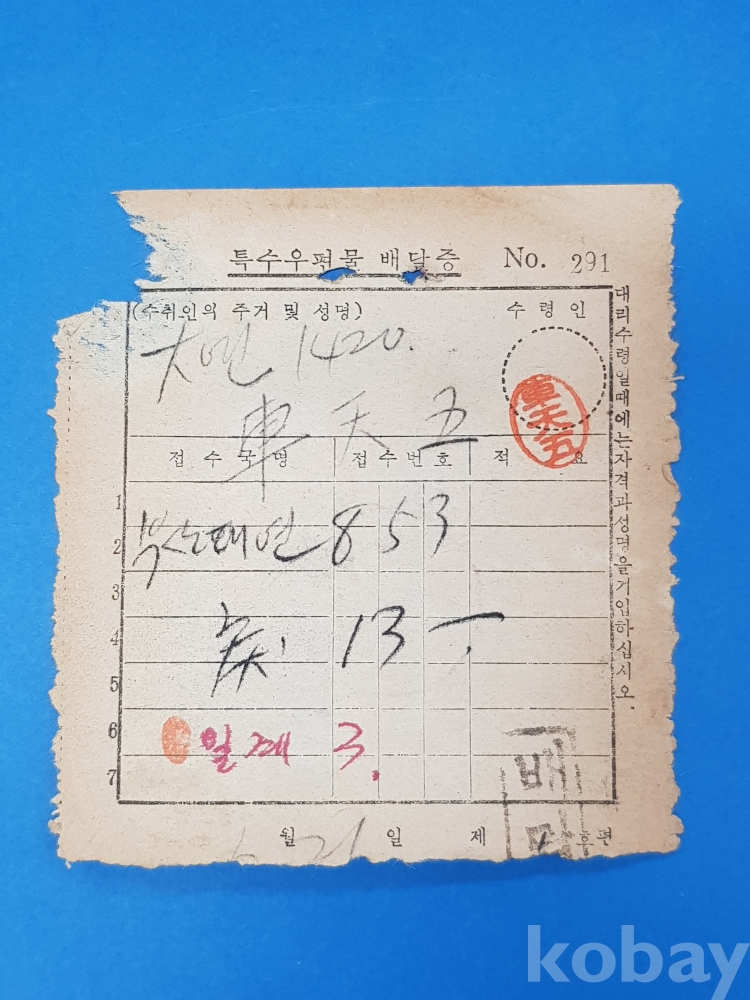 특수우편물 배달증 No. 291
(수취인의 주거 및 성명) 수령인
대연 1420.
車天五
車天五
접수국명 접수번호 적요
1
2 부산대연 853
3
4 13
5
6 일계 3.
7
월 21 일 제 후편
배달
대리수령일때에는자격과성명을기입하십시오.
kobay